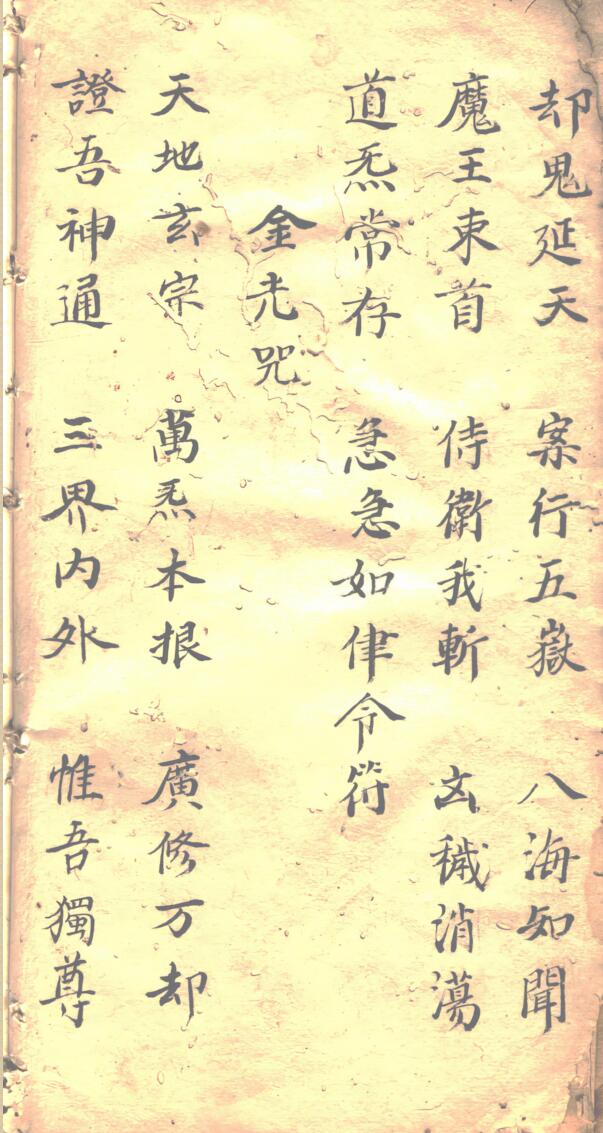 却鬼延天 案行五嶽 八海知聞
魔王束首 侍衛我斬 凶穢消蕩
道炁常存 急急如律令符
金光咒
天地玄宗 萬炁本根 廣修万却
證吾神通 三界内外 惟吾獨尊